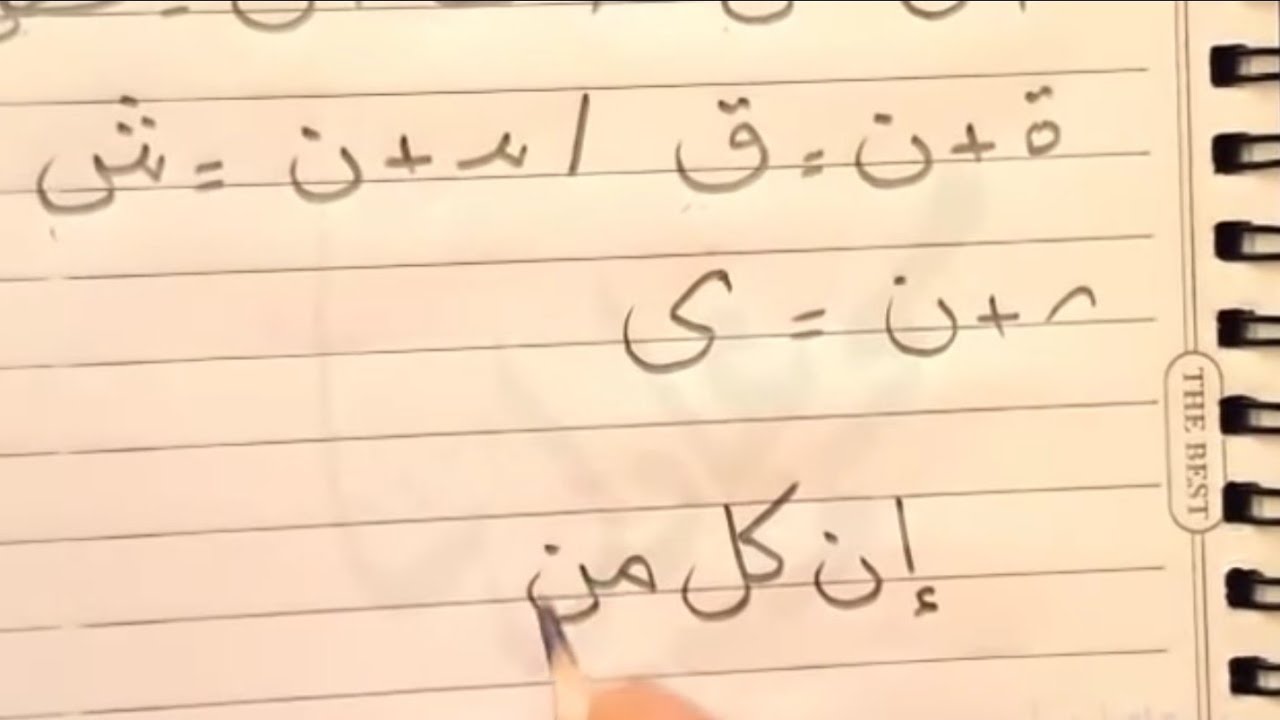 ة + ن = ق / س + ن = ش
ر + ن = ى
إن كل من
THE BEST